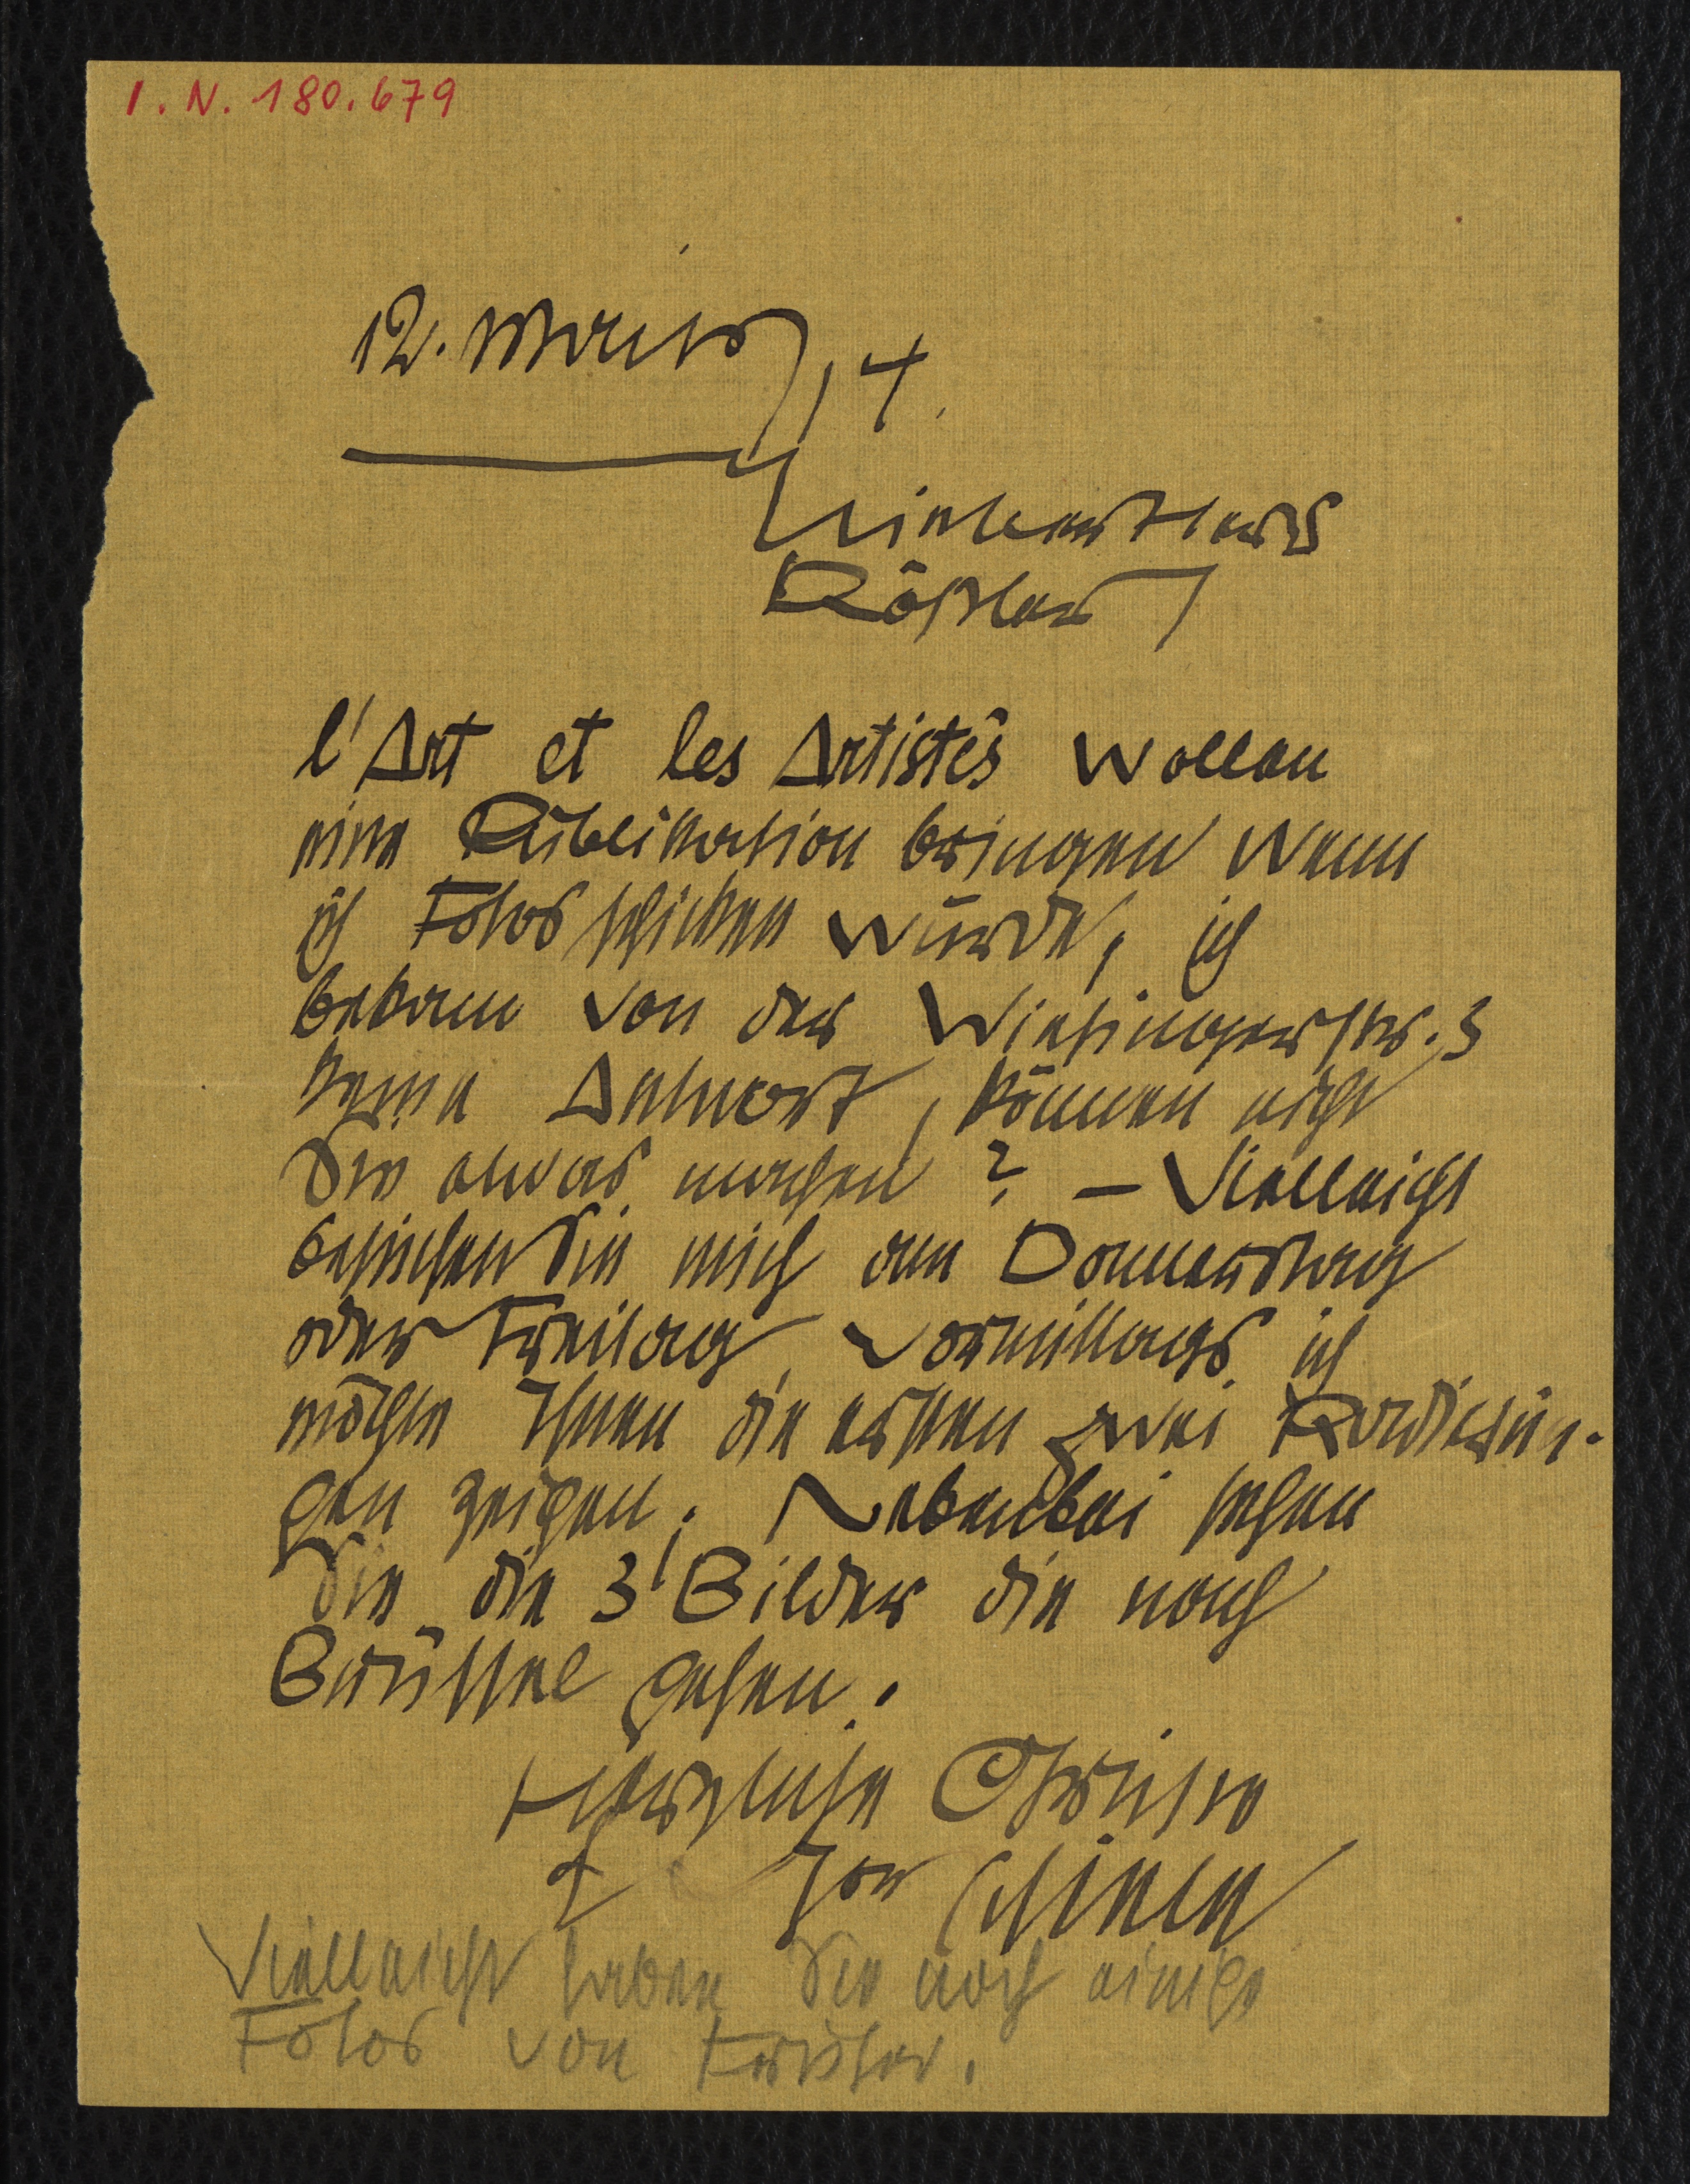 I. N. 180.679
12. März 14.
Lieber Herr
Rößler
l'Art et les Artistes wollen
eine Publikation bringen wenn
ich Fotos schicken würde, ich
bekam von der Wiesingerstr. 3
keine Antwort, können nicht
Sie etwas machen? – Vielleicht
besuchen Sie mich am Donnerstag
oder Freitag vormittags ich
möchte Ihnen die ersten zwei Radierun-
gen zeigen. Nebenbei sehen
Sie die 3 Bilder die nach
Brüssel gehen.
Herzliche Grüße
Ihr Schiele
Vielleicht haben Sie noch einige
Fotos von früher.